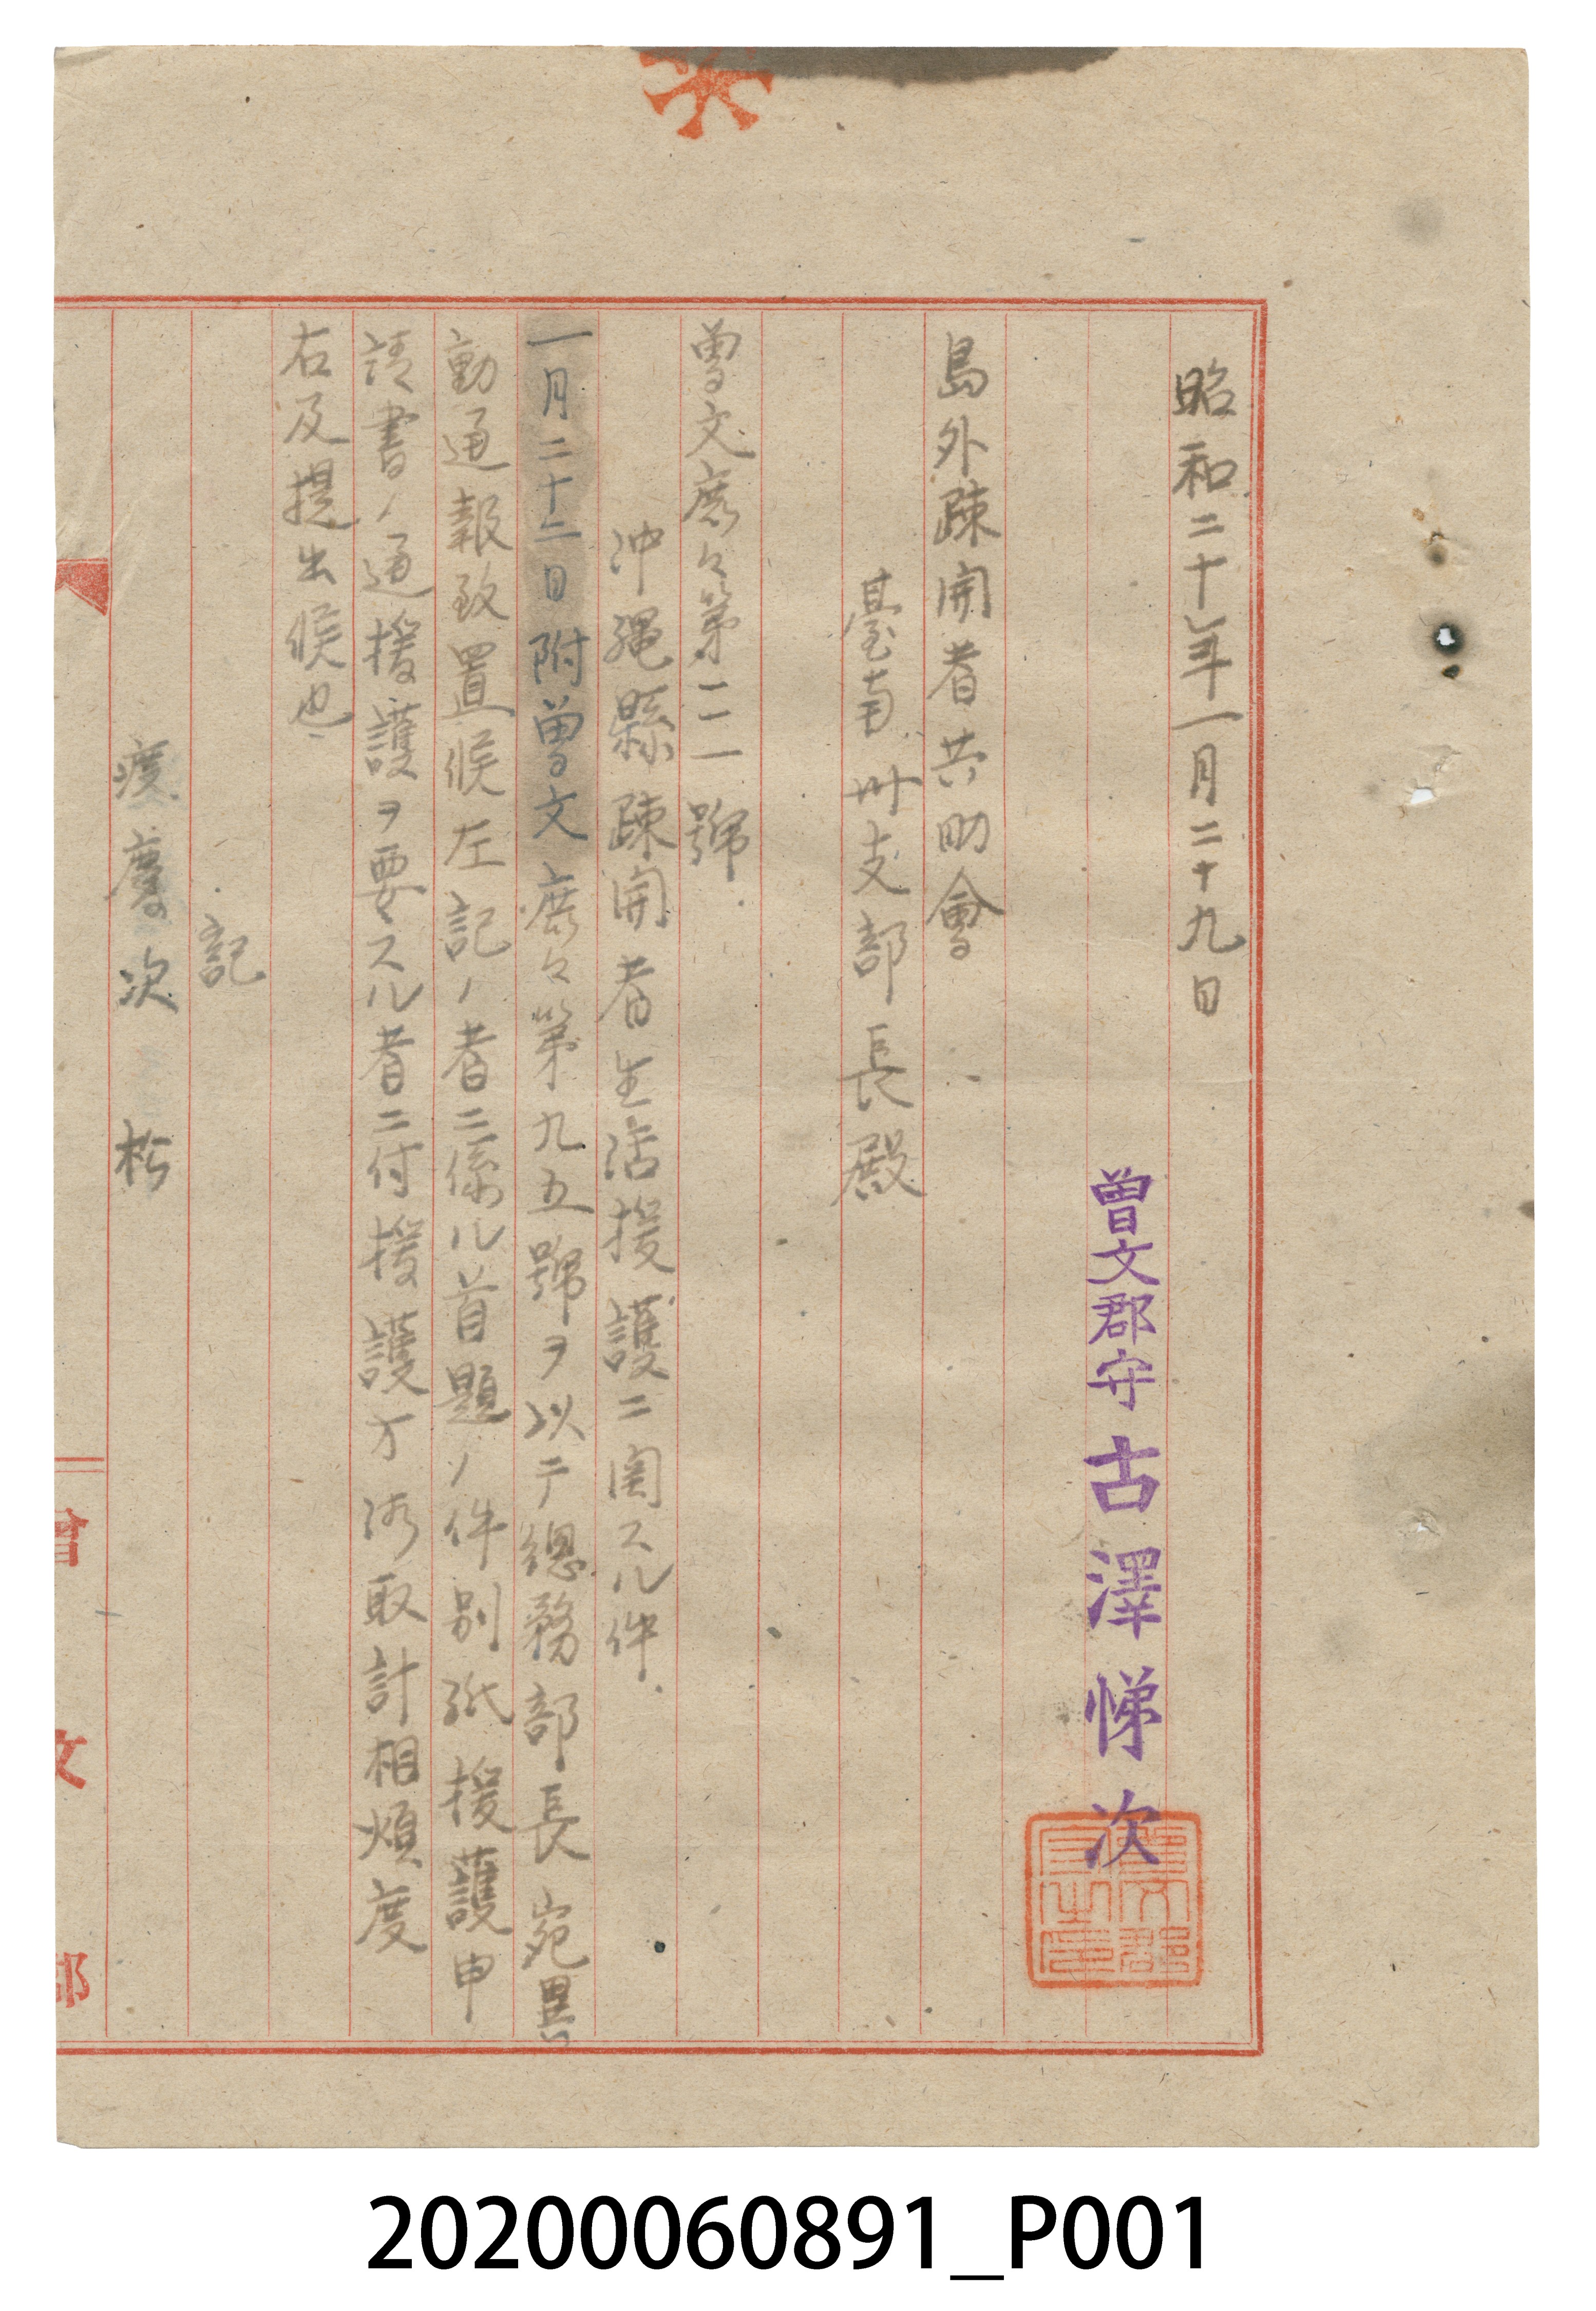 昭和二十年一月二十九日
曾文郡守 古澤悌次
島外疎開者共助會
臺南州支部長殿
曾文庶々第二一號
沖縄縣疎開者生活援護ニ関スル件
一月二十二日附曾文庶々第九五號ヲ以テ總務部長宛異
動通報致置候左記ノ者ニ係ル首題ノ件別紙援護申
請書ノ通援護ヲ要スル者ニ付援護方御取計相煩度
右及提出候也
記
慶次
曾文郡
20200060891_P001